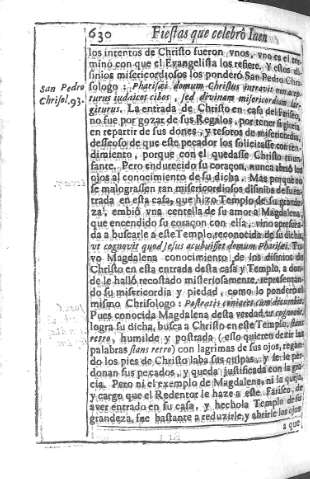 630 Fiestas que celebrò Iaen
los intentos de Christo fueron vnos, vno es el ter
mino con que el Evangelista los refiere. Y estos di-
sinios misericordiosos los ponderò San Pedro Chris-
San Pedro
Chrisol. 93.
sologo: Pharisæi domum Christus intravit non acce-
turus iudaicos cibos, sed divinam misericordiam lar-
giturus. La entrada de Christo en casa del Fariseo,
no fue por gozar de sus Regalos, por tener si gloria
en repartir de sus dones, y tesoros de misericordia,
desseoso de que este pecador los solicitasse con ren-
dimiento, porque con el quedasse Christo triun-
fante. Pero endurecido su coraçon, nunca abriò los
ojos al conocimiento de su dicha. Mas porque no
se malograssen tan misericordiosos disinios de su en-
trada en esta casa, que hizo Templo de su grande-
za, embiò vna centella de su amor a Magdalena,
que encendido su coraçon con ella, vino apresura-
da a buscarle a este Templo, reconocida de su dicha,
vt cognovit quod Jesus acubuisset domum Pharisæi. Tu-
vo Magdalena conocimiento de los disinios de
Christo en esta entrada desta casa y Templo, a don-
de le hallò recostado misteriosamente, representan-
do su misericordia y piedad, como lo ponderò el
mismo Chrisologo:
Pues conocida Magdalena desta verdad, vt cognovit,
logra su dicha, busca a Christo en este Templo, stans
retro, humilde y postrada (esso quieren dezir las
palabras stans retro) con lagrimas de sus ojos, regan-
do los pies de Christo laba sus culpas, y se le per-
donan sus pecados, y queda justificada con la gra-
cia. Pero ni el exemplo de Magdalena, ni la quexa,
y cargo que el Redentor le haze a este Fariseo, de
aver entrado en su casa, y hechola Templo de su
grandeza, fue bastante a reduzirle, y abrirle los ojos
a que